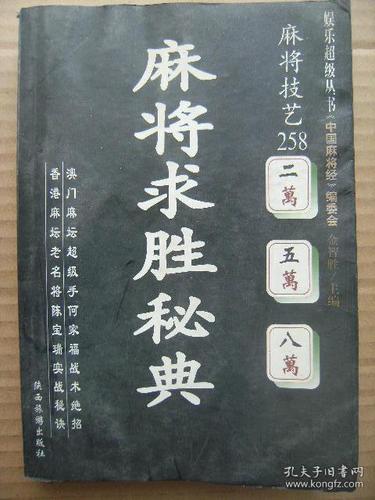 娱乐超级丛书
《中国麻将经》编委会 金智胜/主编
麻将技艺
258
二萬
五萬
八萬
麻将求胜秘典
澳门麻坛超级手何家福战术绝招
香港麻坛老名将陈宝瑞实战秘诀
陕西旅游出版社
孔夫子旧书网